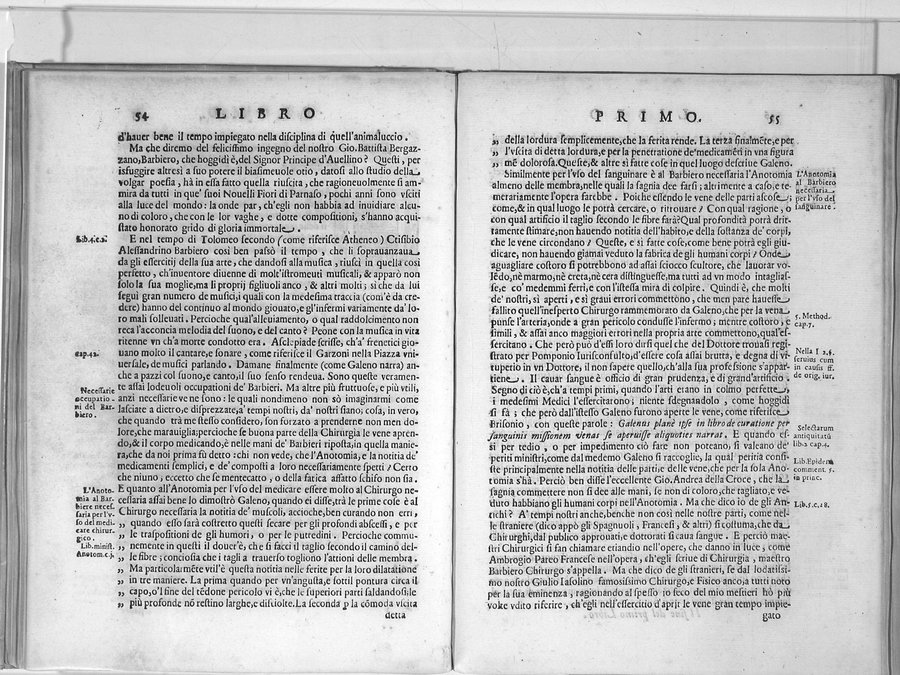 54 LIBRO
d'hauer bene il tempo impiegato nella disciplina di quell'animaluccio.
Ma che diremo del felicissimo ingegno del nostro Gio.Battista Bergaz-
zano,Barbiero, che hoggidì è,del Signor Principe d'Auellino? Questi, per
isfuggire altresi a suo potere il biasimeuole otio, datosi allo studio della
volgar poesia, hà in essa fatto quella riuscita, che ragioneuolmente si am-
mira da tutti in que' suoi Nouelli Fiori di Parnaso, pochi anni sono vsciti
alla luce del mondo: la onde par, ch'egli non habbia ad inuidiare alcu-
no di coloro, che con le lor vaghe, e dotte compositioni, s'hanno acqui-
stato honorato grido di gloria immortale.
Lib.4.c.2.
E nel tempo di Tolomeo secondo (come riferisce Atheneo) Ctisibio
Alessandrino Barbiero così ben passò il tempo, che li soprauanzaua
da gli essercitij della sua arte, che dandosi alla musica, riuscì in quella così
perfetto, ch'inuentore diuenne di molt'istromeuti musicali, & apparò non
solo la sua moglie,ma li proprij figliuoli anco, & altri molti; sì che da lui
seguì gran numero de musici,i quali con la medesima traccia (com'è da cre-
dere) hanno del continuo al mondo giouato,e gl'infermi variamente da' lo-
ro mali solleuati. Percioche qual'alleuiamento, o qual raddolcimento non
reca l'acconcia melodia del suono, e del canto? Peone con la musica in vita
ritenne vn ch'a morte condotto era. Asclepiade scrisse, ch'a' frenetici gio-
cap.42.
uano molto il cantare,e sonare, come riferisce il Garzoni nella Piazza vni-
uersale,de musici parlando. Damane finalmente (come Galeno narra) an-
che a pazzi col suono,e canto,il suo senso rendeua. Sono queste veramen-
te assai lodeuoli occupationi de' Barbieri. Ma altre più fruttuose, e più vtili,
Necessarie
occupatio-
ni del Bar-
biero.
anzi necessarie ve ne sono: le quali nondimeno non sò imaginarmi come
lasciate a dietro,e disprezzate,a' tempi nostri, da' nostri siano; cosa, in vero,
che quando trà me stesso considero, son forzato a prenderne non men do-
lore,che marauiglia;percioche se buona parte della Chirurgia le vene apren-
do,& il corpo medicando,è nelle mani de' Barbieri riposta,in quella manie-
ra,che da noi prima fù detto: chi non vede, che l'Anotomia,e la notitia de'
medicamenti semplici, e de' composti a loro necessariamente spetti? Certo
che niuno, eccetto che se mentecatto, o della fatica affatto schifo non sia.
L'Anoto-
mia al Bar-
biere necess.
saria per l'v-
so del medi-
care chirur-
gico.
Lib.minist.
Anotom.c.3.
E quanto all'Anotomia per l'vso del medicare essere molto al Chirurgo ne-
cessaria assai bene lo dimostrò Galeno, quando ei disse,trà le prime cose è al
Chirurgo necessaria la notitia de' muscoli, acciochè,ben curando non erri,
„ quando esso sarà costretto questi secare per gli profondi abscessi, e per
„ le traspositioni de gli humori, o per le putredini. Percioche commu-
„ nemente in questi il douer'è, che si facci il taglio secondo il camino del-
„ le fibre; conciosia che i tagli a trauerso togliono l'ationi delle membra.
„ Ma particolarmēte vtil'è questa notitia nelle ferite per la loro dilatatione
„ in tre maniere. La prima quando per vn'angusta,e sottil pontura circa il
„ capo,o'l fine del tēdone pericolo vi è,che le superiori parti saldandosi,le
„ più profonde nō restino larghe,e disciolte.La seconda p la cōmoda vscita
detta
PRIMO. 55
„ della lordura semplicemente,che la ferita rende. La terza finalmēte,e per
„ l'vscita di detta lordura,e per la penetratione de'medicamēti in vna figura
„ mē dolorosa.Queste,& altre sì fatte cose in quel luogo descriue Galeno.
L'Anotomia
al Barbiero
necessaria
per l'vso del
sanguinare.
Similmente per l'vso del sanguinare è al Barbiero necessaria l'Anotomia
almeno delle membra,nelle quali la sagnia dee farsi; altrimente a caso,e te-
merariamente l'opera farebbe. Poiche essendo le vene delle parti ascose,
come,& in qual luogo le potrà cercare, o ritrouare? Con qual ragione, o
con qual artificio il raglio secondo le fibre farà?Qual profondità potrà drit-
tamente stimare,non hauendo notitia dell'habito,e della sostanza de' corpi,
che le vene circondano? Queste, e sì fatte cose,come bene potrà egli giu-
dicare, non hauendo giamai veduto la fabrica de gli humani corpi? Onde
aguagliare costoro si potrebbono ad assai sciocco scultore, che lauorar vo-
lēdo,nè marmo,nè creta,nè cera distinguesse,ma tutti ad vn modo intaglias-
se,e co' medemmi ferri,e con l'istessa mira di colpire. Quindi è, che molti
de' nostri, sì aperti, e sì graui errori commettono, che men pare hauesse
fallito quell'inesperto Chirurgo rammemorato da Galeno,che per la vena
5. Method.
cap.7.
punse l'arteria,onde a gran pericolo condusse l'infermo; mentre costoro, e
simili, & assai anco maggiori errori nella propria arte commettono,qual'es-
sercitano. Che però può d'essi loro dirsi quel che del Dottore trouasi regi-
Nella l 2.§.
seruius cum
in causis ff.
de orig. iur.
strato per Pomponio Iurisconsulto,d'essere cosa assai brutta, e degna di vi-
tuperio in vn Dottore, il non sapere quello,ch'alla sua professione s'appar-
tiene. Il cauar sangue è officio di gran prudenza, e di grand'artificio.
Segno di ciò è,ch'a tempi primi, quando l'arti erano in colmo perfette,
i medesimi Medici l'essercitarono; niente sdegnandolo, come hoggidì
si fà; che però dall'istesso Galeno furono aperte le vene,come riferisce
Selectarum
antiquitatū
lib.2 cap.4.
Brisonio, con queste parole: Galenus planè ipse in libro de curatione per
sanguinis missionem venas se aperuisse aliquoties narrat. E quando es-
si per tedio, o per impedimento ciò fare non poteano, si valeano de'
Lib.Epidem.
comment.5.
in princ.
periti ministri,come dal medemo Galeno si raccoglie, la qual peritia consi-
ste principalmente nella notitia delle parti,e delle vene,che per la sola Ano-
tomia s'hà. Perciò ben disse l'eccellente Gio.Andrea della Croce, che la
sagnia commettere non si dee alle mani, se non di coloro,che tagliato,e ve-
Lib.1.c.18.
duto habbiano gli humani corpi nell'Anotomia. Ma che dico io de gli An-
tichi? A' tempi nostri anche,benche non così nelle nostre parti, come nel-
le straniere (dico appò gli Spagnuoli, Francesi, & altri) si costuma,che da
Chirurghi,dal publico approuati,e dottorati si caua sangue. E perciò mae-
stri Chirurgici si fan chiamare etiandio nell'opere, che danno in luce, come
Ambrogio Pareo Francese nell'opera, ch'egli scriue di Chirurgia, maestro
Barbiero Chirurgo s'appella. Ma che dico de gli stranieri, se dal lodatissi-
mo nostro Giulio Iasolino famosissimo Chirurgo,e Fisico anco,a tutti noto
per la sua eminenza, ragionando al spesso io seco del mio mestieri hò più
volte vdito riferire, ch'egli nell'essercitio d'aprir le vene gran tempo impie-
gato